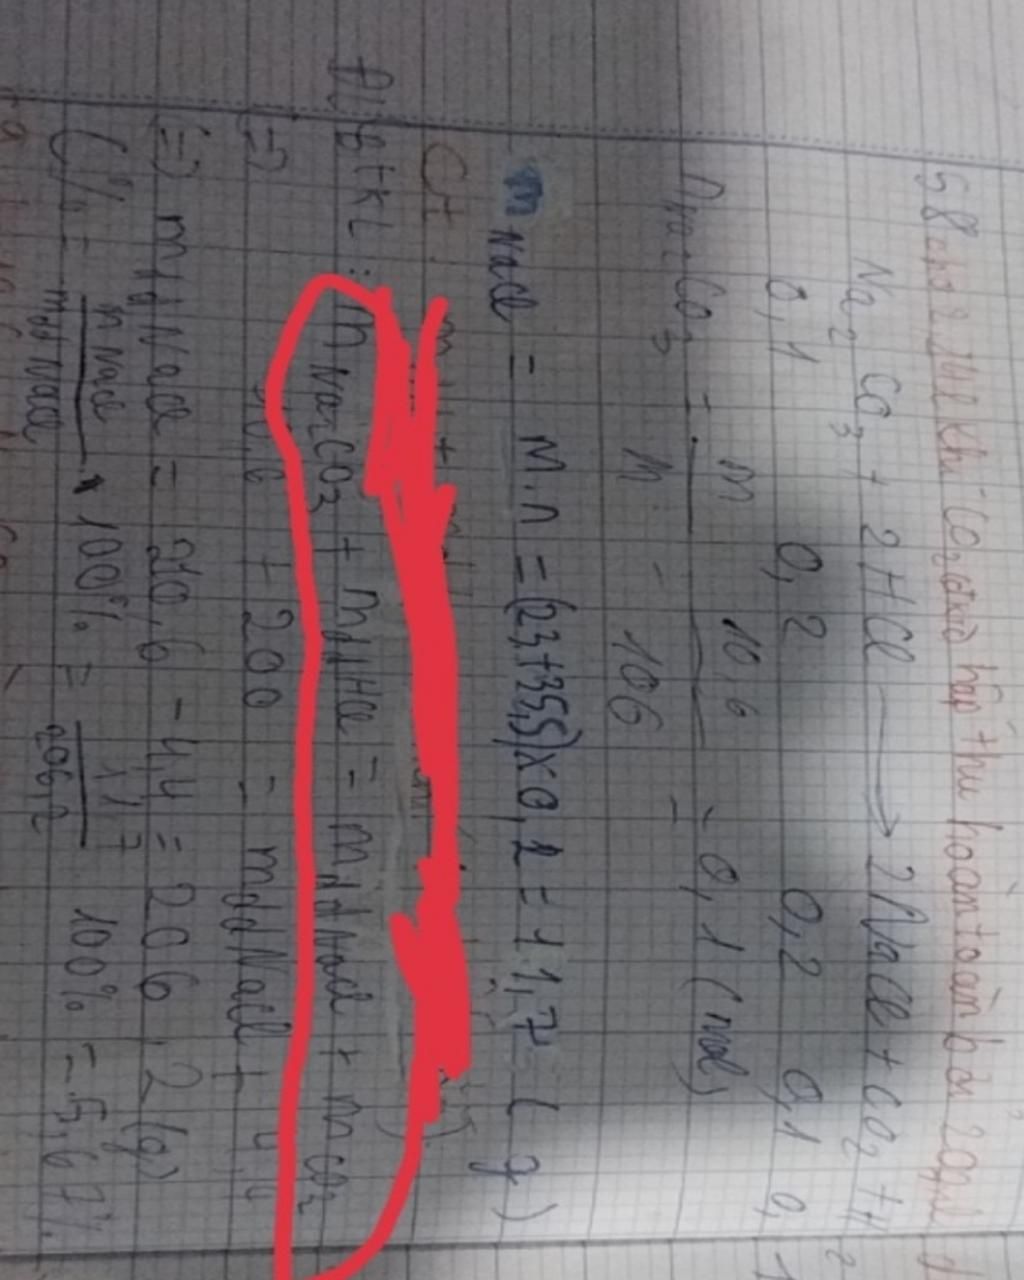 58 cho 2,24l khí CO2 được hấp thu hoàn toàn bởi 200ml
Na2CO3 + 2HCl → 2NaCl + CO2 + H2
0,1 0,2 0,2 0,1 0,1
nNa2CO3 = m/M = 10,6/106 = 0,1 (mol)
mNaCl = M.n = (23+35,5)x0,2 = 11,7 (g)
Ct:
ĐLBTKL: mNa2CO3 + mddHCl = mddNaCl + mCO2
=> 10,6 + 200 = mddNaCl + 4,4
=> mddNaCl = 210,6 - 4,4 = 206,2 (g)
C% = mNaCl/mddNaCl x 100% = 11,7/206,2 100% = 5,67%